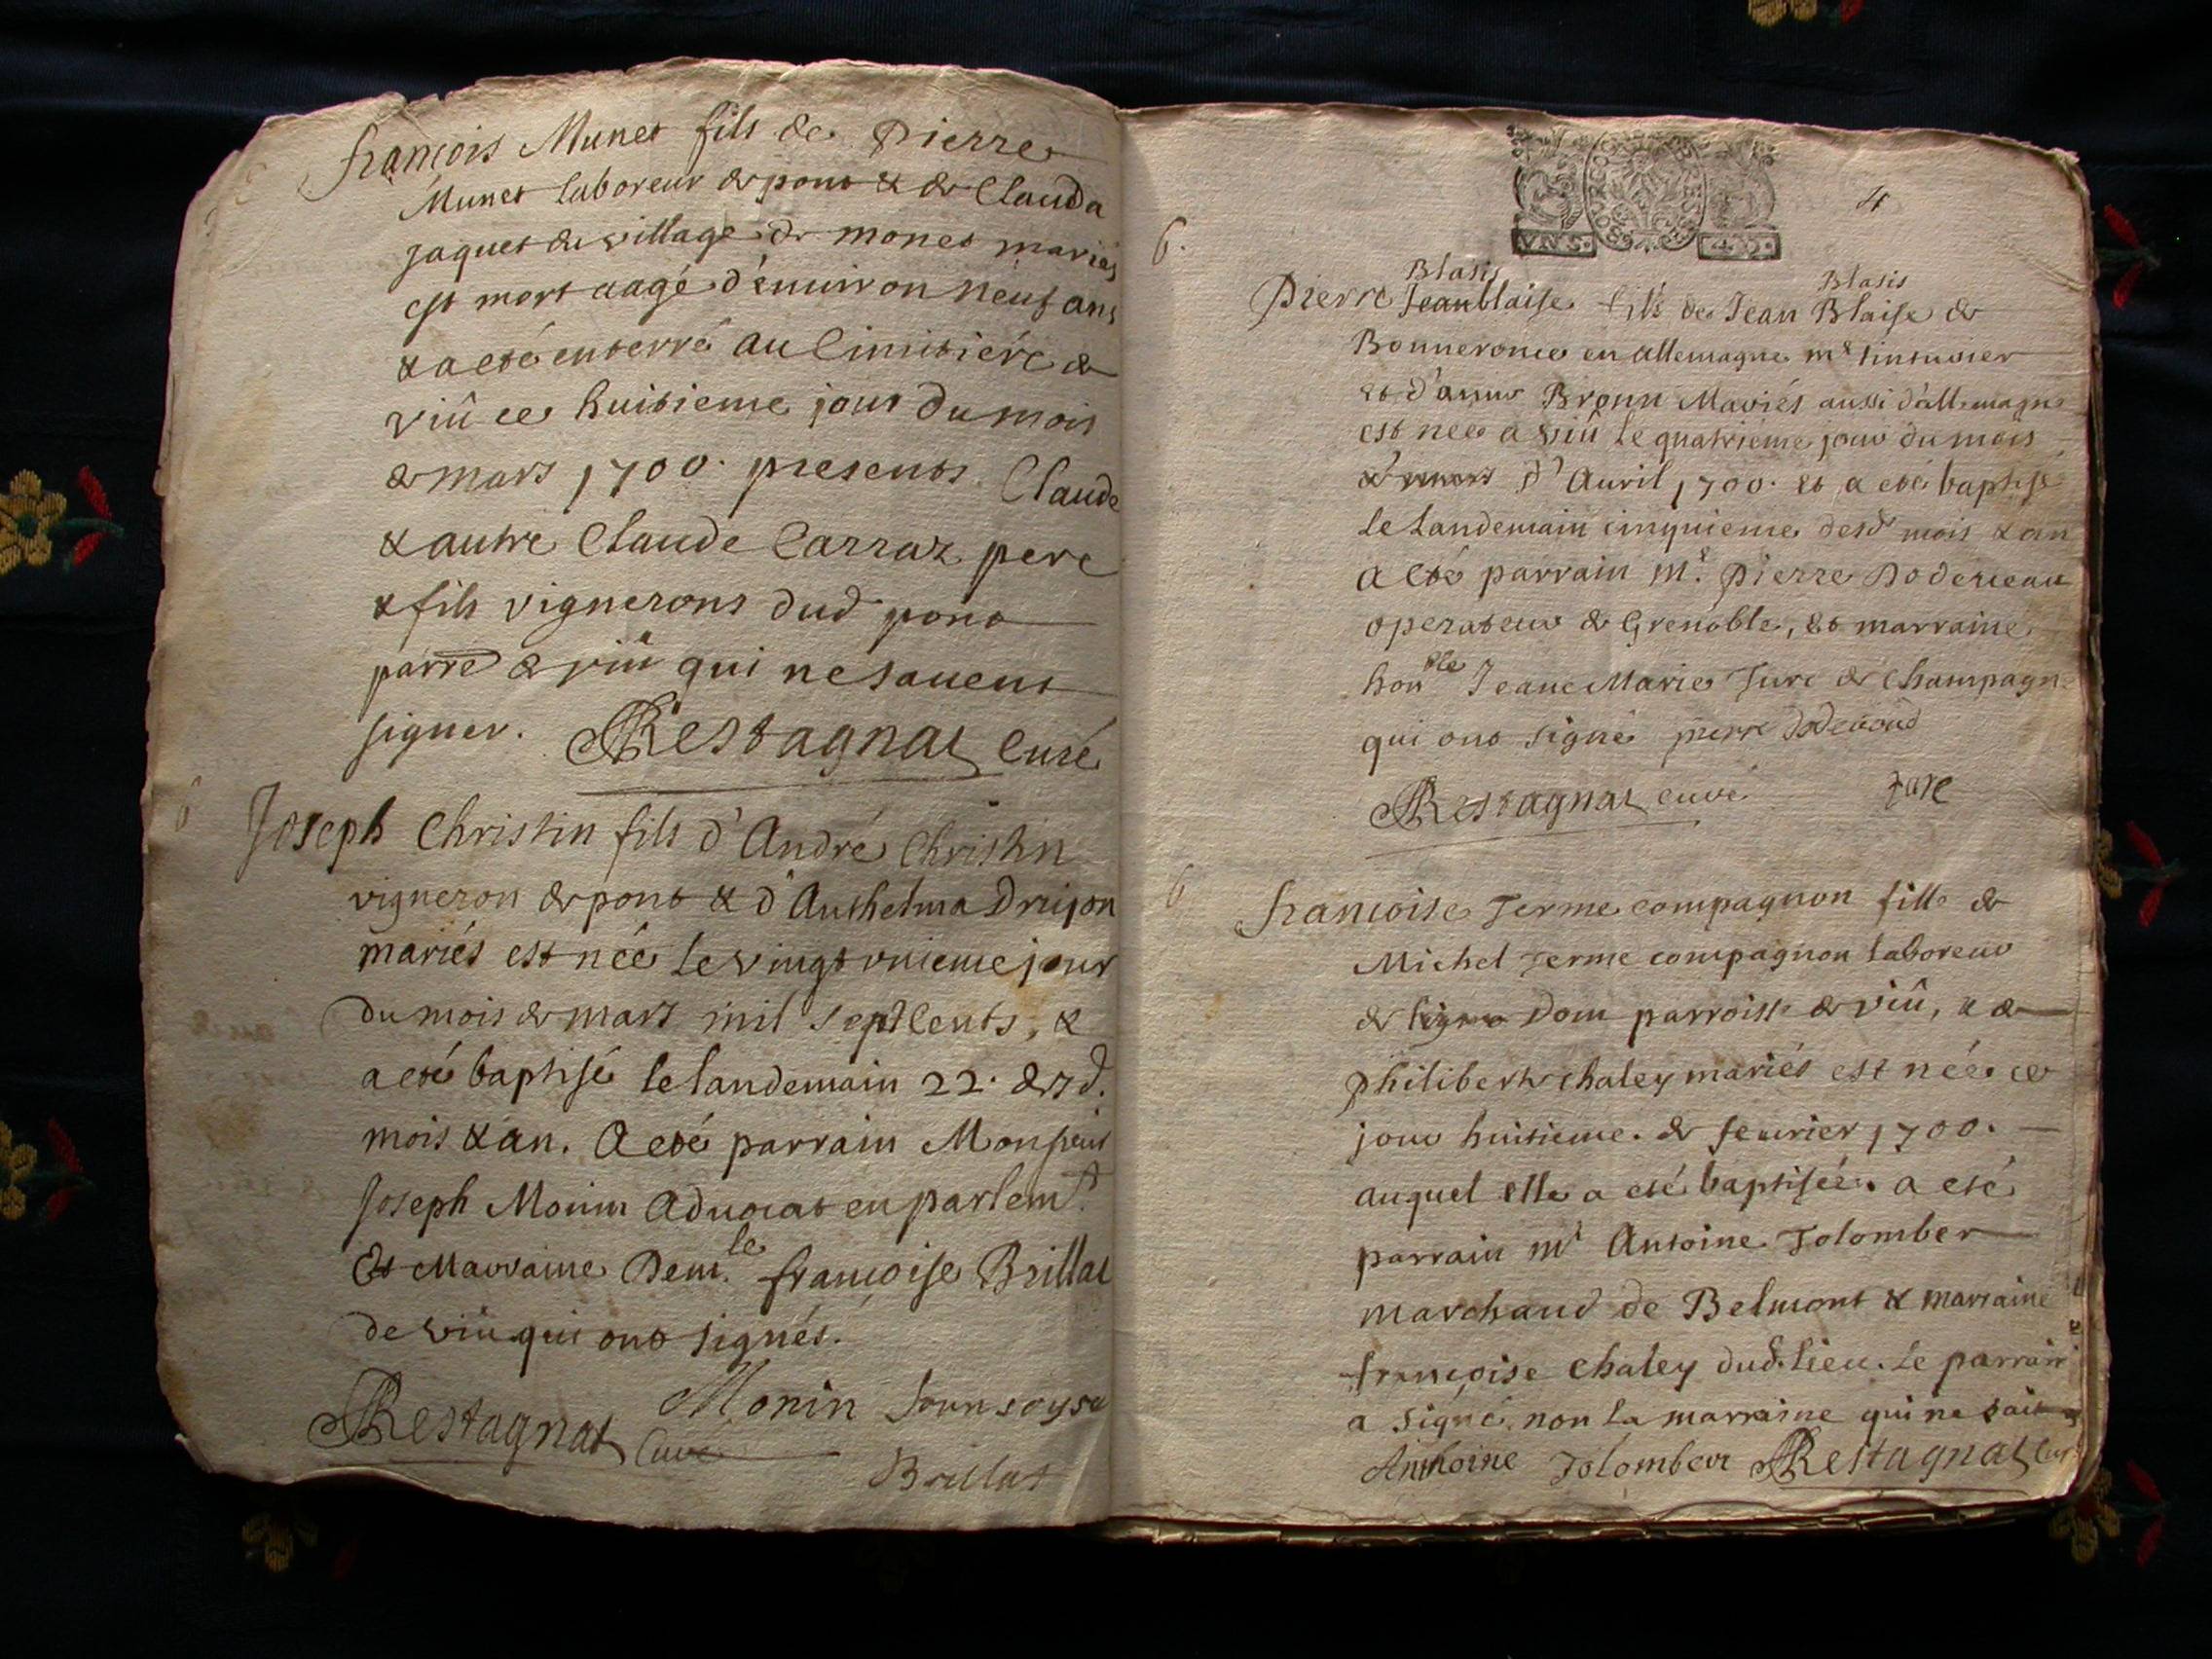 françois Munet fils de Pierre
Munet laboreur de pont & de Clauda
Jaquet du village de monet mariés
est mort aagé d'enuiron neuf ans
& a eté enterré au Cimitiére de
viû ce huitieme jour du mois
de mars 1700. presents Claude
& autre Claude Carraz pere
& fils vignerons dud pont
parre de viû qui ne sauent
signer. Restagnat Curé
Joseph Christin fils d'André Christin
vigneron de pont & d'Anthelma Drujon
mariés est née le vingt vnieme jour
du mois de mars mil sept Cents, &
a eté baptisé le landemain 22. desd.
mois & an. A eté parrain Monsieur
Joseph Monin Aduocat en parlemt.
Et Marraine Dem.le françoise Brillat
de viû qui ont signés.
Restagnat Curé Monin
Brillat
4
6.
VN S. 4 D.
Blasis Blasis
Pierre Jean blaise fils de Jean Blaise de
en allemagne mr
et d'anne Bronn Mariés aussi d'allemagne
est née a viû le quatrieme jour du mois
de mars d'Auril 1700. et a eté baptisé
le landemain cinquieme desd mois & an
A eté parrain Mr. Pierre
operateur de Grenoble, et marraine
honble Jeane Marie Jure de Champagne
qui ont signé pierre
Restagnat curé Jure
6
francoise Terme compagnon fille de
Michel Terme compagnon laboreur
de Dom parroisse de viû, & de
philiberte chaley mariés est née ce
jour huitieme de feurier 1700.
auquel elle a eté baptisée. a eté
parrain mr Antoine Jolomber
marchand de Belmont & marraine
françoise Chaley dud. lieu. Le parrain
a signé, non la marraine qui ne sait
Anthoine Jolomber Restagnat Curé